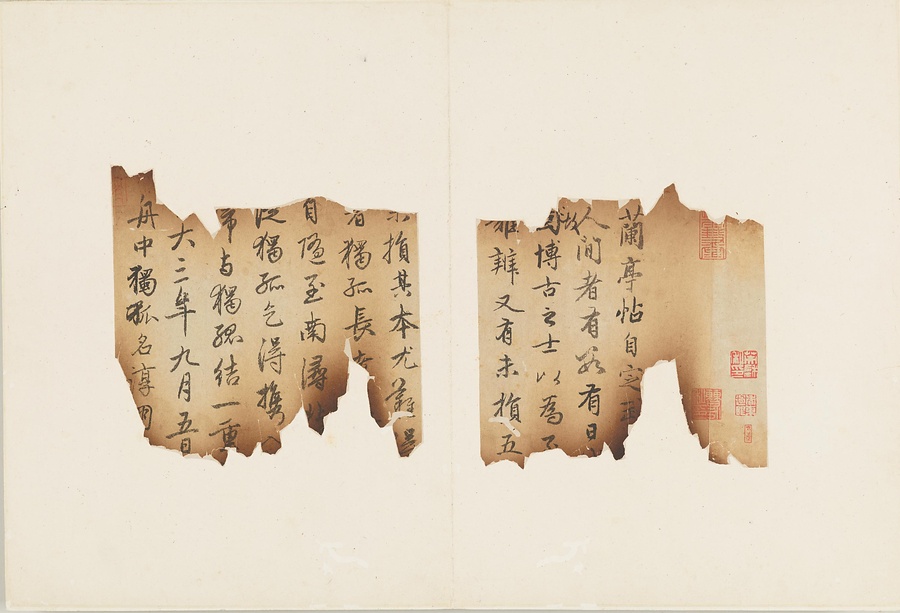 蘭亭帖自定武
人間者有數有日
博古之士以為
難辨又有未損五
損其本尤難得
者獨孤長
自隨至南潯
從獨孤乞得攜入
帚与獨孤結一重
大三年九月五日
舟中獨孤名淳朋